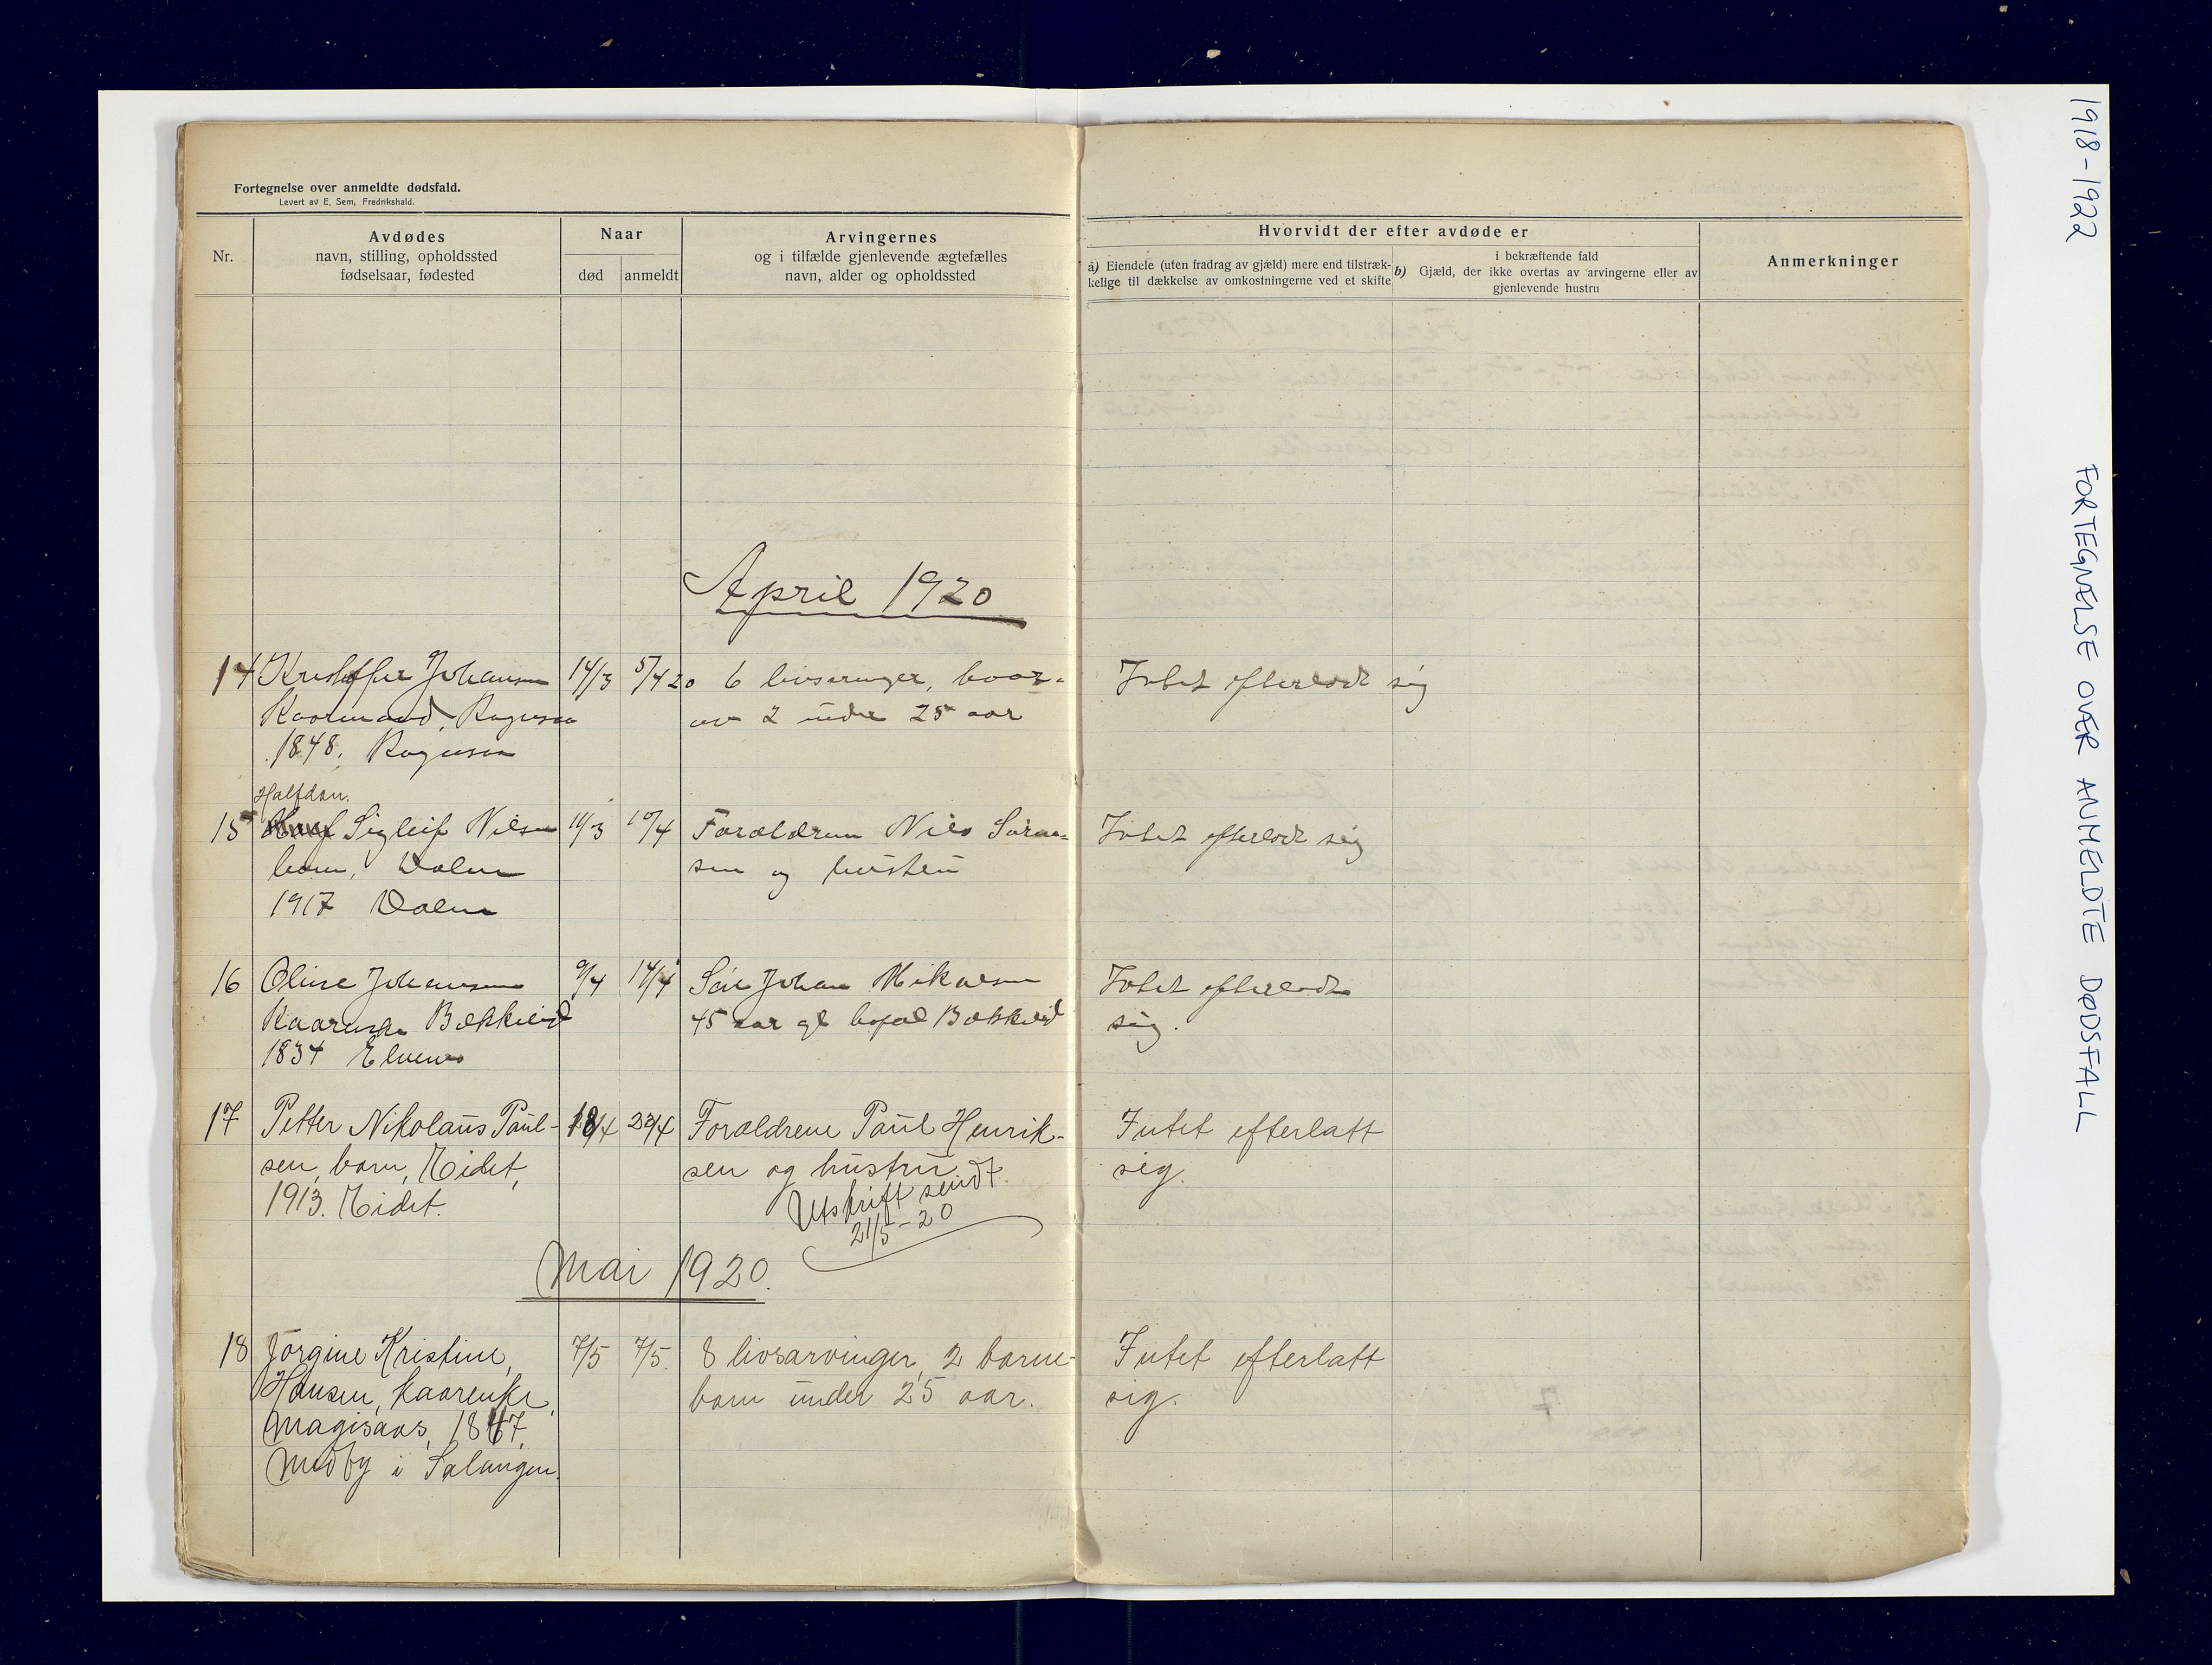 1918-1922 FORTEGNELSE OVER ANMELDTE DØDSFALL
Fortegnelse over anmeldte dødsfald.
Levert av E. Sem, Fredrikshald.
Nr.
Avdødes
navn, stilling, opholdssted
fødselsaar, fødested
Naar
død
anmeldt
Arvingernes
og i tilfælde gjenlevende ægtefælles
navn, alder og opholdssted
Hvorvidt der efter avdøde er
a) Eiendele (uten fradrag av gjæld) mere end tilstræk-
kelige til dækkelse av omkostningerne ved et skifte
i bekræftende fald
b) Gjæld, der ikke overtas av arvingerne eller av
gjenlevende hustru
Anmerkninger
April 1920
14 Kristoffer Johansen 14/3 5/4 20 6 livsarvinger, hvor- Intet efterladt sig
Kaarmand, av 2 under 25 aar
1848,
Halfdan.
15 Sigleif Nilsen 11/3 10/4 Forældrene Nils Søren- Intet efterladt sig
barn, Dalen sen og hustru
1917 Dalen
16 Oline Johansen 9/4 14/4 Søn Johan Mikalsen Intet efterladt
Kaarenke Bækkeid 45 aar gl bopæl Bækkeid sig.
1834 Elvenes
17 Petter Nikolaus Paul- 18/4 23/4 Forældrene Paul Henrik- Intet efterlatt
sen, barn, sen og hustru sig.
1913. Utskrift sendt
21/5-20
Mai 1920.
18 Jørgine Kristine, 7/5 7/5. 8 livsarvinger, 2 barne- Intet efterlatt
Hansen, kaarenke, barn under 25 aar. sig.
Magisaas, 1847,
Medby i Salangen.